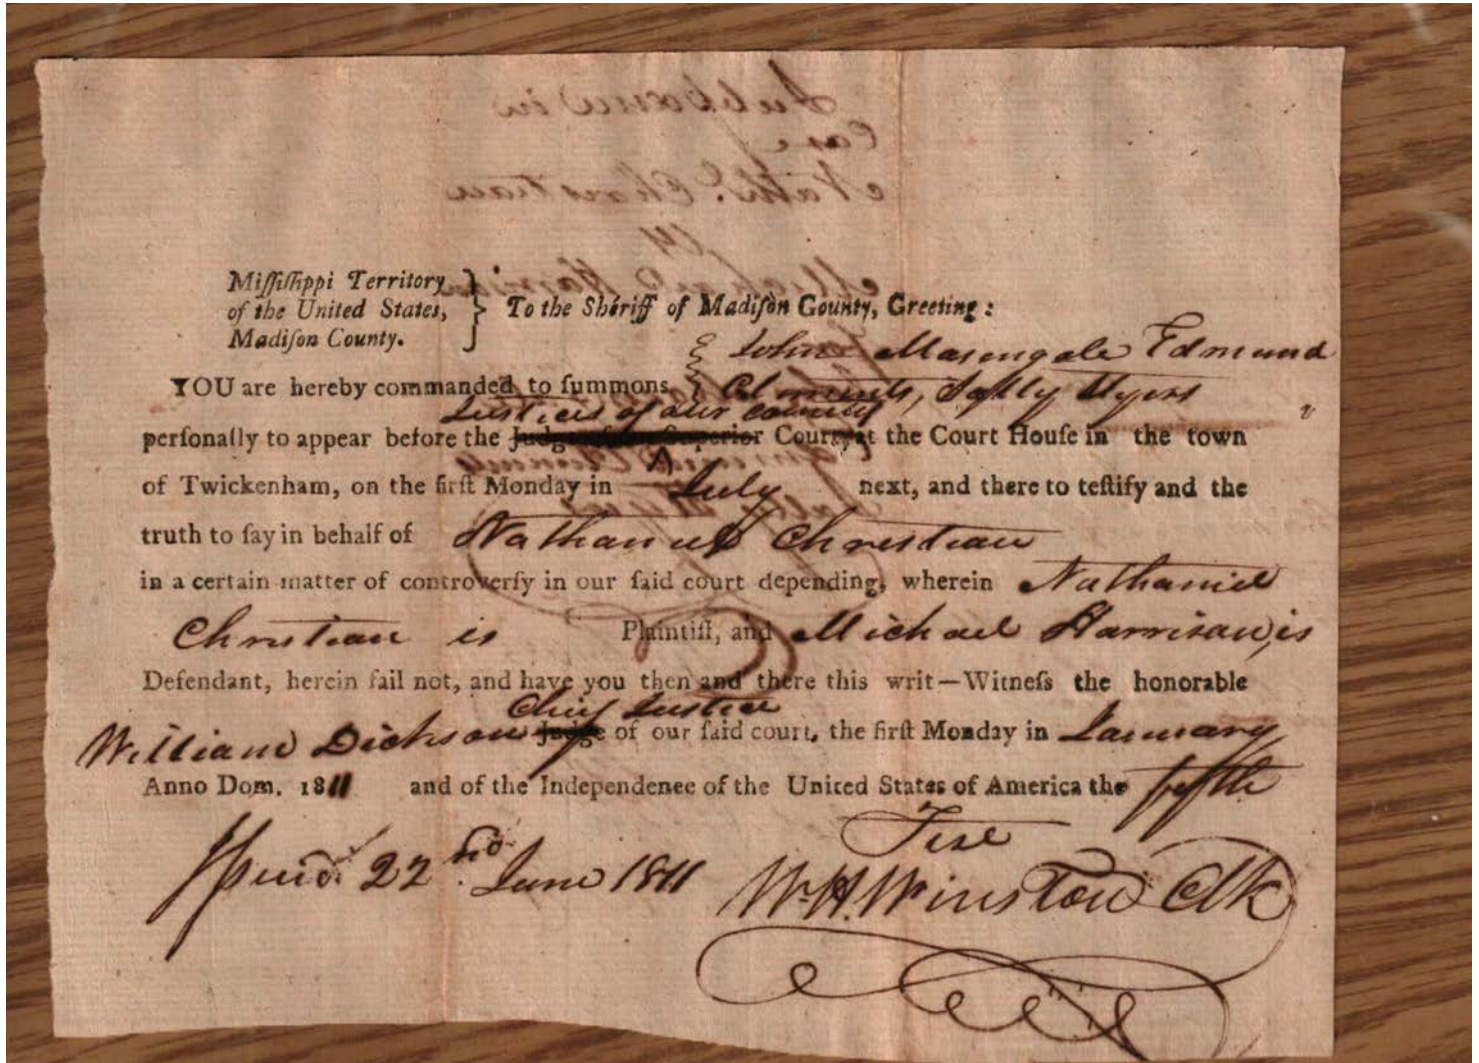 Miſſiſſippi Territory
of the United States,
Madiſon County.
To the Sheriff of Madiſon County, Greeting:
John Masengale Edmund
YOU are hereby commanded to ſummons Clements, Sally Myers
Justices of our County
perſonally to appear before the Judges of our Superior Court, at the Court Houſe in the town
of Twickenham, on the firſt Monday in July next, and there to teſtify and the
truth to ſay in behalf of Nathaniel Christian
in a certain matter of controverſy in our ſaid court depending, wherein Nathaniel
Christian is Plaintiff, and Michael Harrison, is
Defendant, herein fail not, and have you then and there this writ—Witneſs the honorable
Chief Justice
William Dickson Judge of our ſaid court, the firſt Monday in January
Anno Dom. 1811 and of the Independence of the United States of America the
Test
Issued. 22nd. June 1811
W.H. Winston Clk